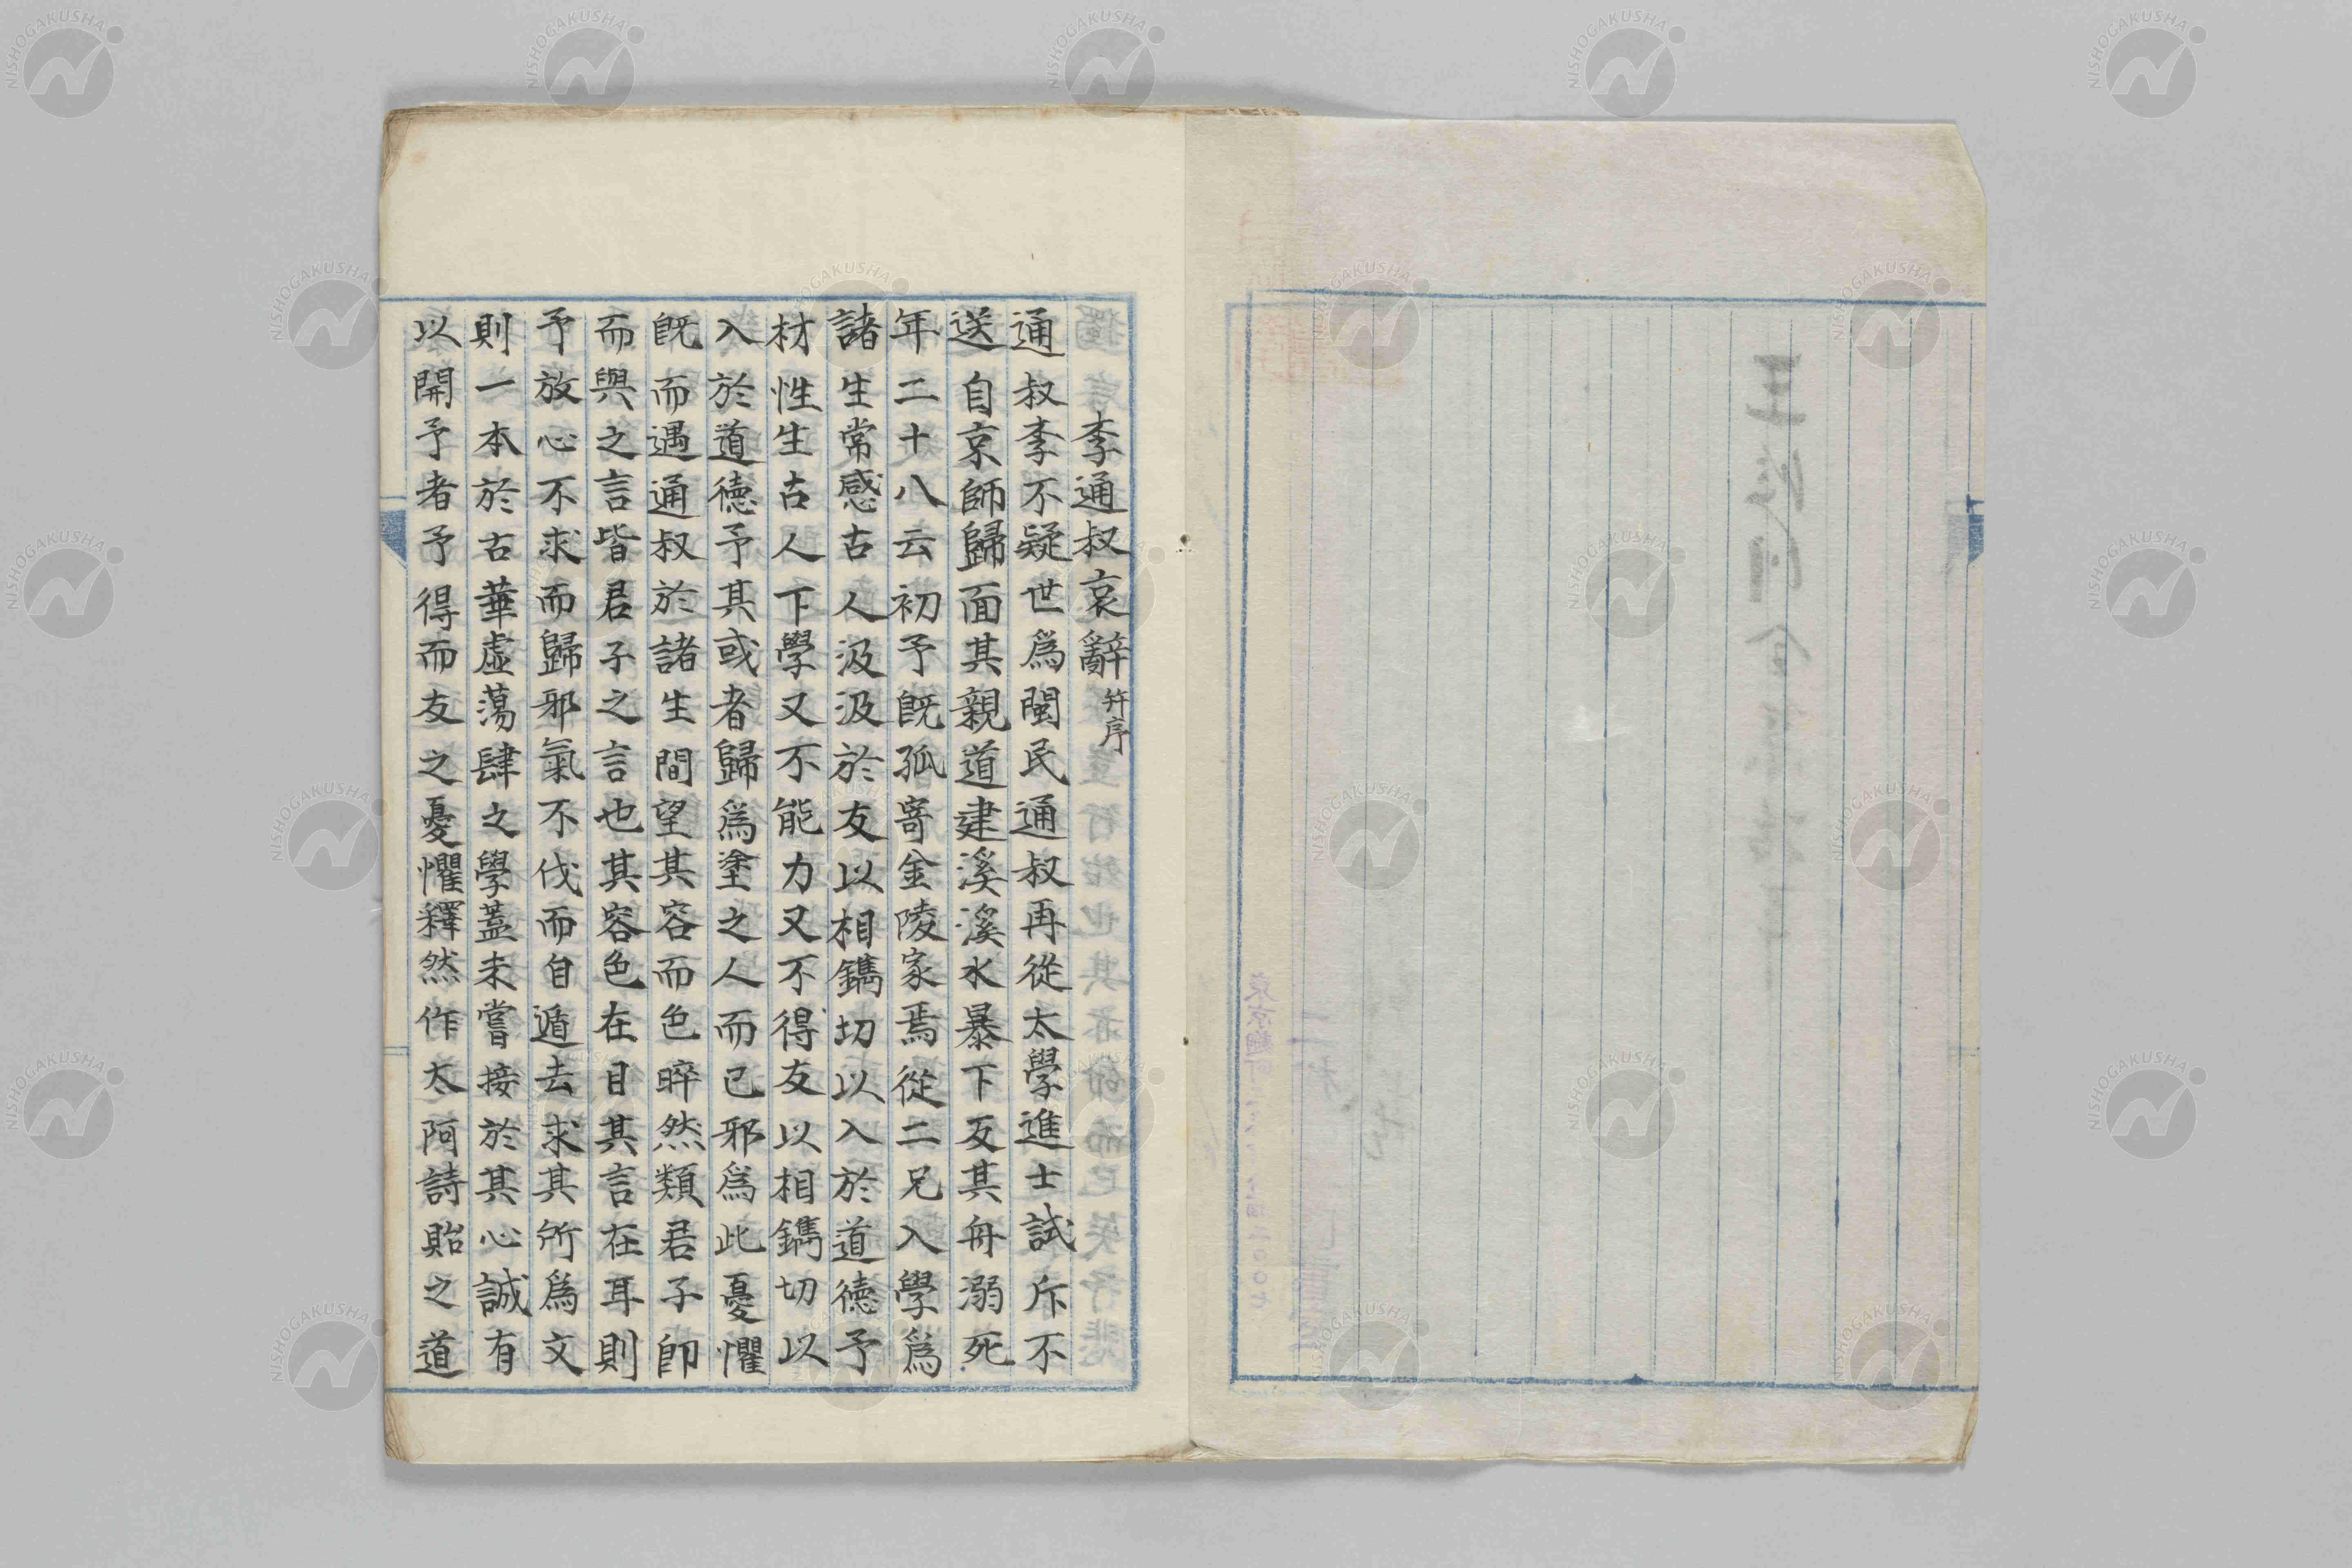 李通叔哀辭 幷序
通叔李不疑世爲閩民通叔再從太學進士試斥不
送自京師歸面其親道建溪溪水暴下反其舟溺死
年二十八云初予既孤寄金陵家焉從二兄入學爲
諸生常感古人汲汲於友以相鐫切以入於道德予
材性生古人下學又不能力又不得友以相鐫切以
入於道德予其或者歸爲塗之人而已邪爲此憂懼
既而遇通叔於諸生間望其容而色睟然類君子卽
而與之言皆君子之言也其容色在目其言在耳則
予放心不求而歸邪氣不伐而自遁去求其所爲文
則一本於古華虛蕩肆之學蓋未嘗接於其心誠有
以開予者予得而友之憂懼釋然作太阿詩貽之道
NISHOGAKUSHA